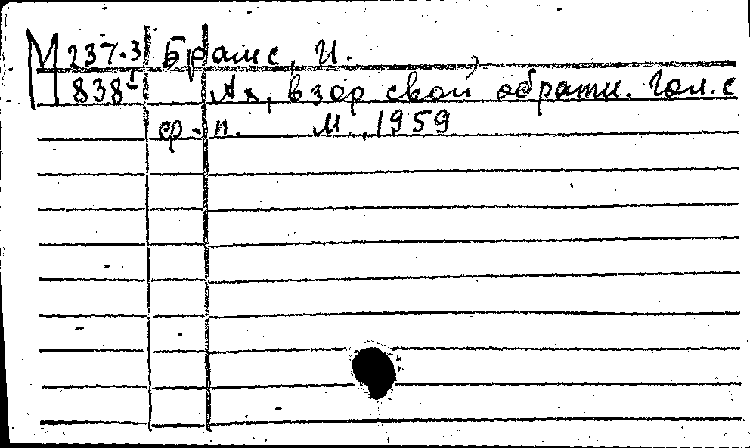 М 237-3 Брамс, И.
838 Ах, взор свой обрати. Гол. с
ф-п. М., 1959